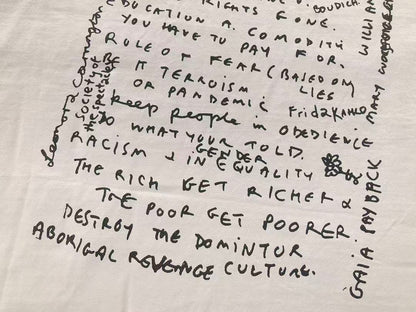 RIGHTS GONE.
BOUDICH.
EDUCATION A. COMODITY
YOU HAVE TO PAY FOR.
RULE OF FEAR (BASED ON
IT TERROISM LIES
OR PANDEMIC FridaKAHLO.
keep people in OBEDIENCE
DO WHAT YOUR TOLD.
GENDER
RACISM & INEQUALITY
THE RICH GET RICHER &
THE POOR GET POORER.
DESTROY THE DOMINTUR
ABORIGAL REVENGE CULTURE.
Leonora Carrington
Society of
the spectacle
WILLIAM
MARY
GAIA PAYBACK